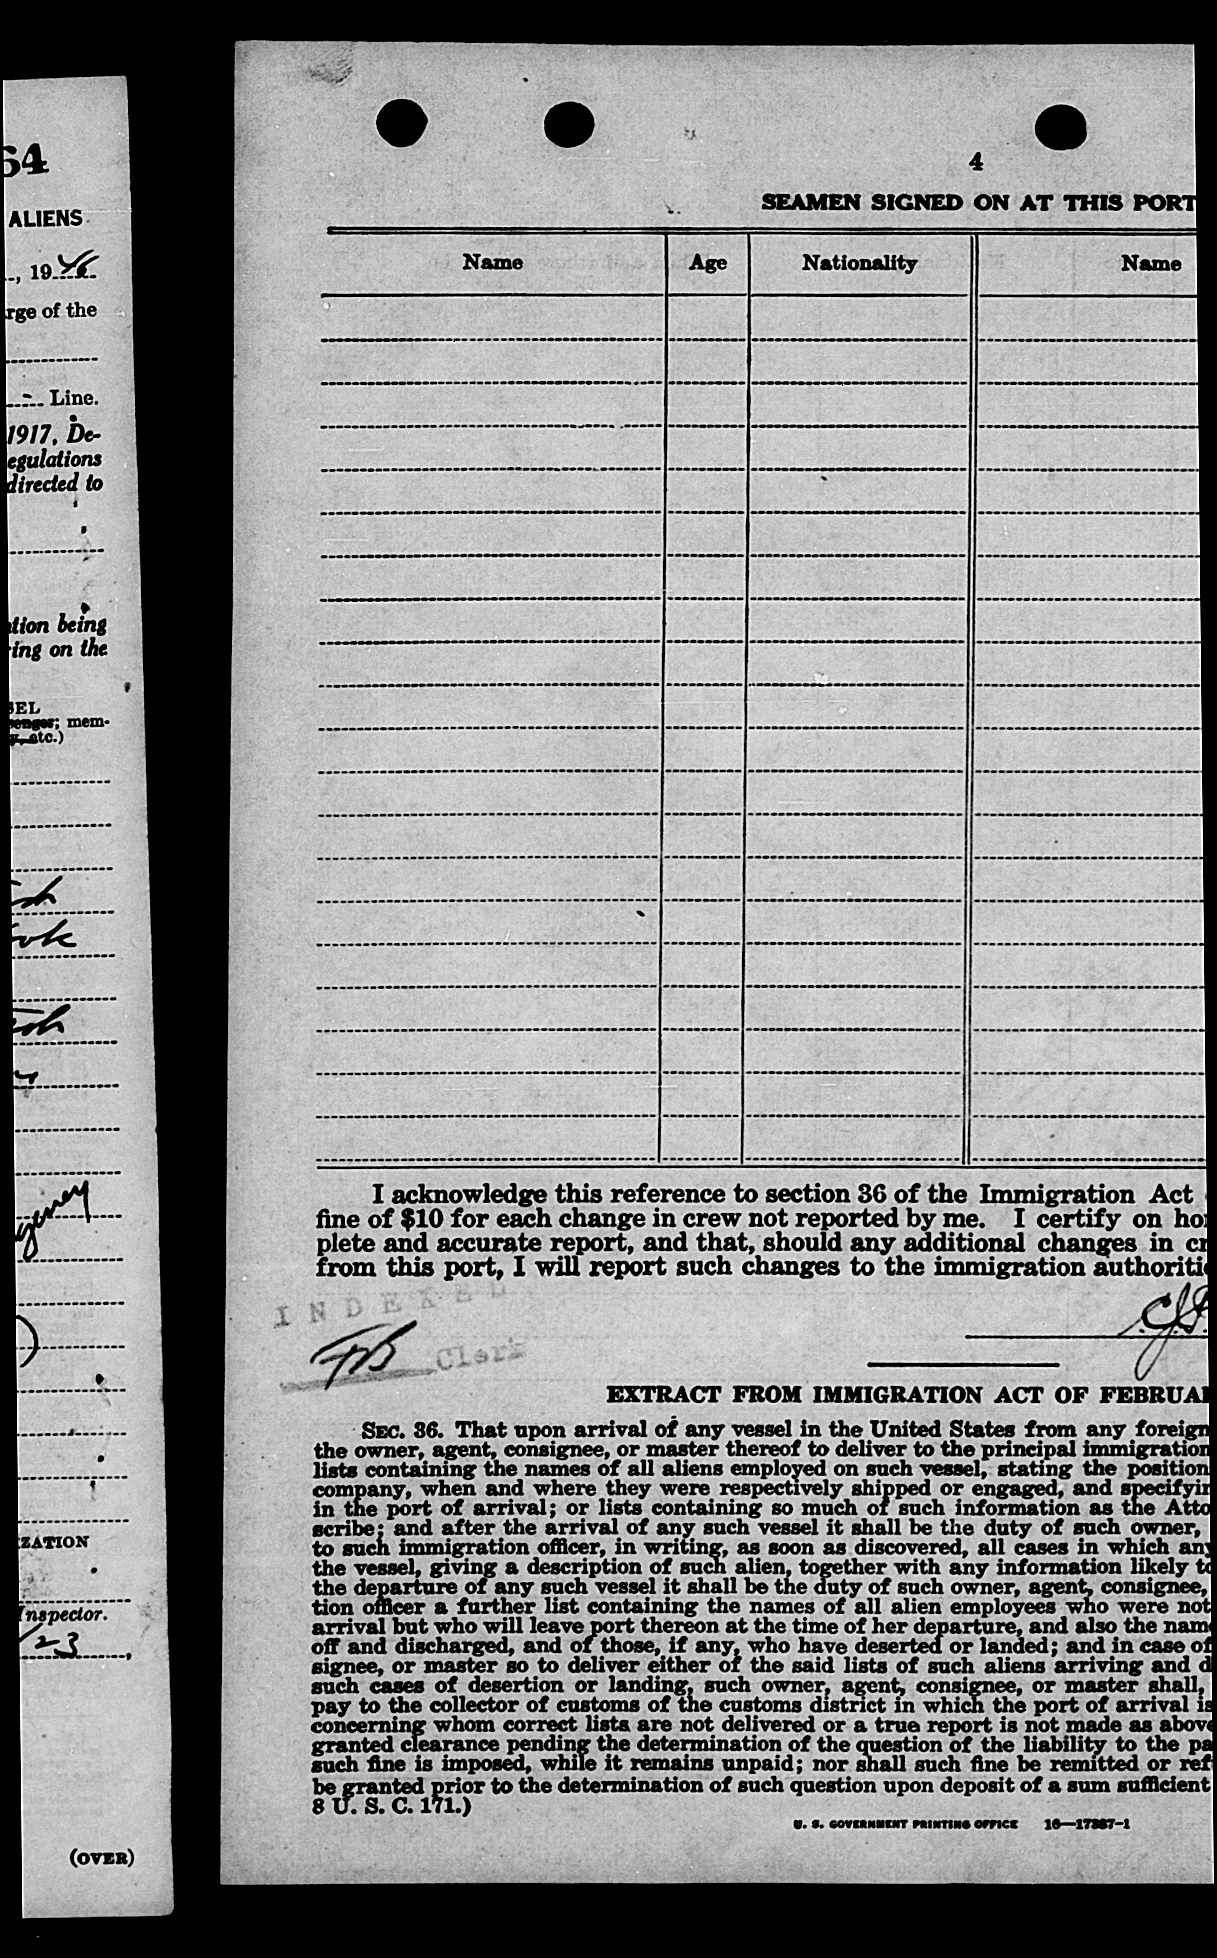 64
ALIENS
, 1946
rge of the
Line.
1917, De-
egulations
directed to
tion being
ing on the
SEL
senger; mem-
, etc.)
ZATION
Inspector.
23
(OVER)
4
SEAMEN SIGNED ON AT THIS PORT
Name Age Nationality Name
I acknowledge this reference to section 36 of the Immigration Act
fine of $10 for each change in crew not reported by me. I certify on ho
plete and accurate report, and that, should any additional changes in cr
from this port, I will report such changes to the immigration authoriti
INDEXED
Clerk
EXTRACT FROM IMMIGRATION ACT OF FEBRUA
SEC. 36. That upon arrival of any vessel in the United States from any foreign
the owner, agent, consignee, or master thereof to deliver to the principal immigration
lists containing the names of all aliens employed on such vessel, stating the position
company, when and where they were respectively shipped or engaged, and specifyin
in the port of arrival; or lists containing so much of such information as the Atto
scribe; and after the arrival of any such vessel it shall be the duty of such owner,
to such immigration officer, in writing, as soon as discovered, all cases in which any
the vessel, giving a description of such alien, together with any information likely to
the departure of any such vessel it shall be the duty of such owner, agent, consignee,
tion officer a further list containing the names of all alien employees who were not
arrival but who will leave port thereon at the time of her departure, and also the nam
off and discharged, and of those, if any, who have deserted or landed; and in case of
signee, or master so to deliver either of the said lists of such aliens arriving and d
such cases of desertion or landing, such owner, agent, consignee, or master shall,
pay to the collector of customs of the customs district in which the port of arrival is
concerning whom correct lists are not delivered or a true report is not made as above
granted clearance pending the determination of the question of the liability to the pa
such fine is imposed, while it remains unpaid; nor shall such fine be remitted or ref
be granted prior to the determination of such question upon deposit of a sum sufficient
8 U. S. C. 171.)
U. S. GOVERNMENT PRINTING OFFICE 16—17387-1